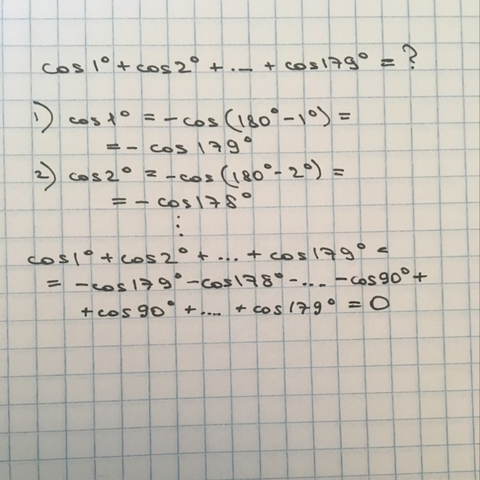 cos1° + cos2° + ... + cos179° = ?
1) cos1° = -cos(180°-1°) =
= - cos179°
2) cos2° = -cos(180°-2°) =
= - cos178°
⋮
cos1° + cos2° + ... + cos179° =
= -cos179° -cos178° - ... -cos90° +
+cos90° + .... + cos179° = 0